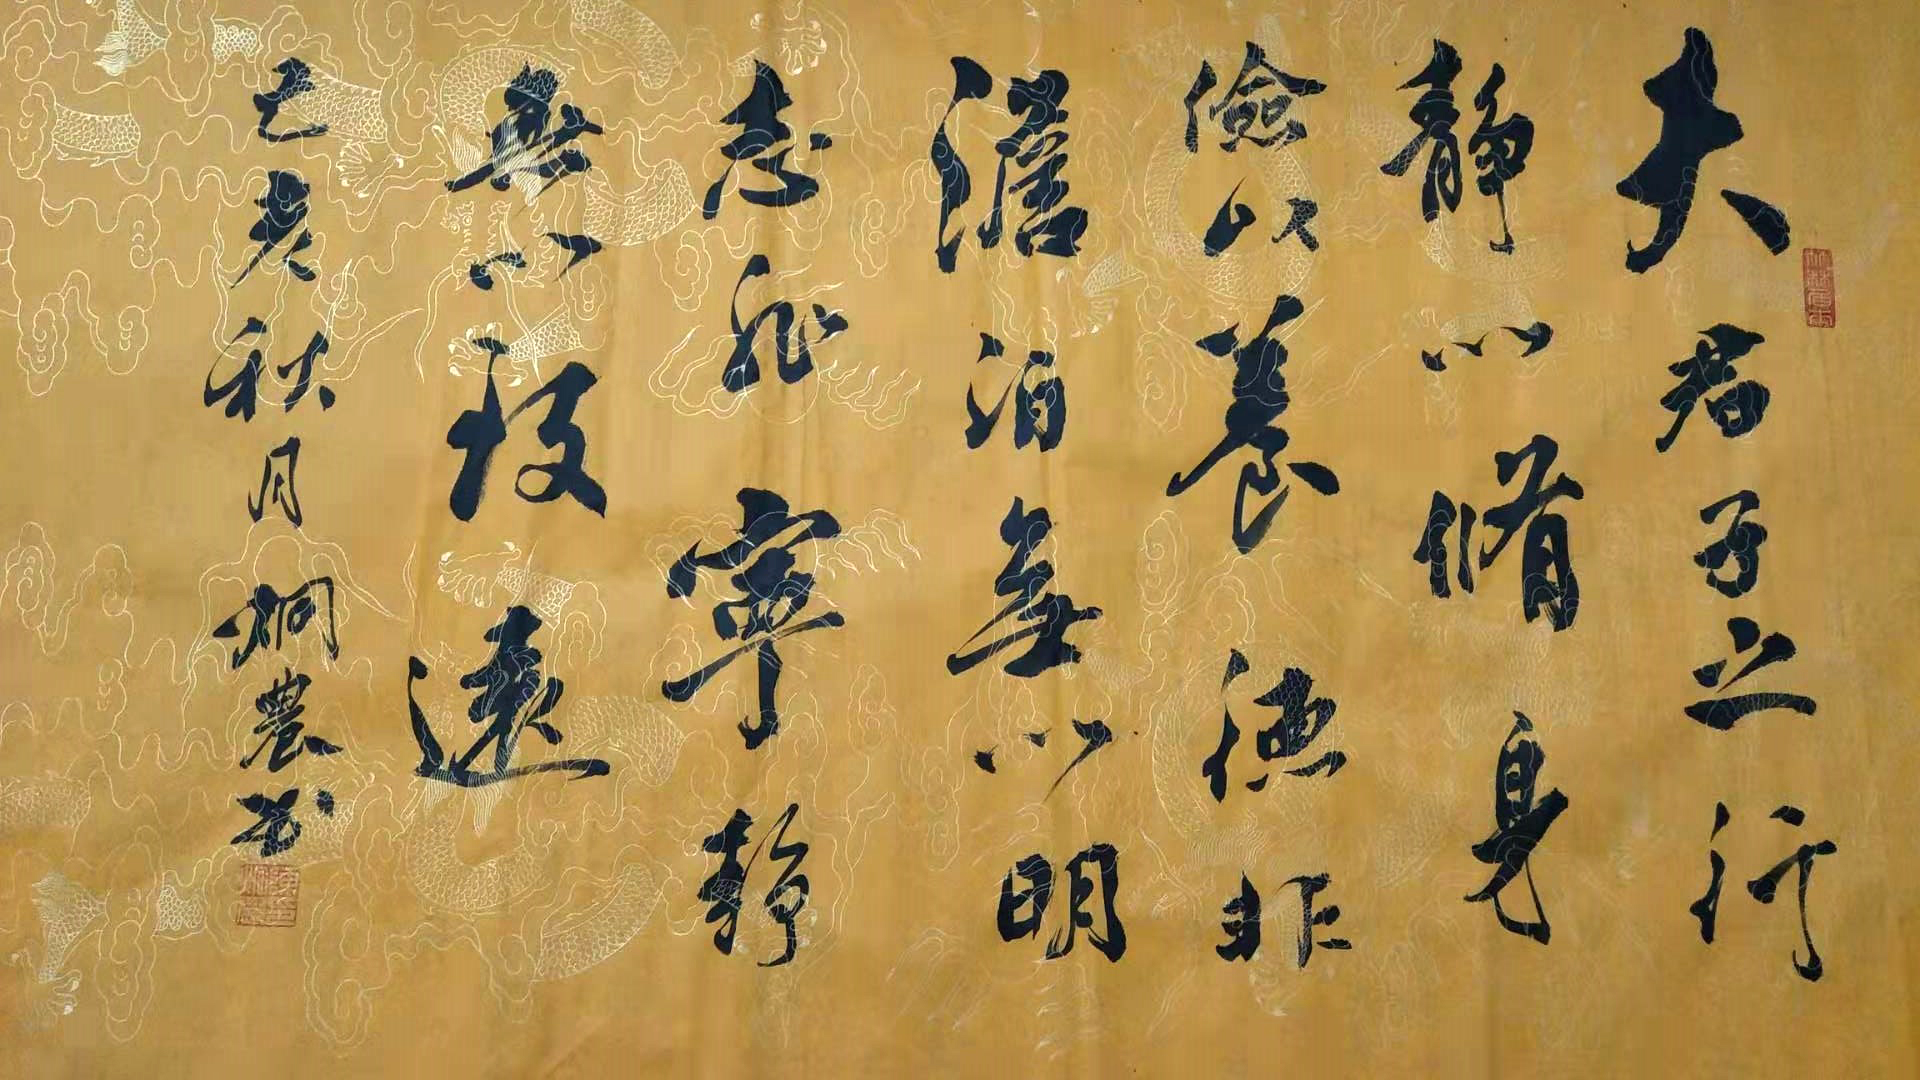 夫君子之行
靜以脩身
儉以養德非
澹泊無以明
志非寧靜
無以致遠
己亥秋月炯農书